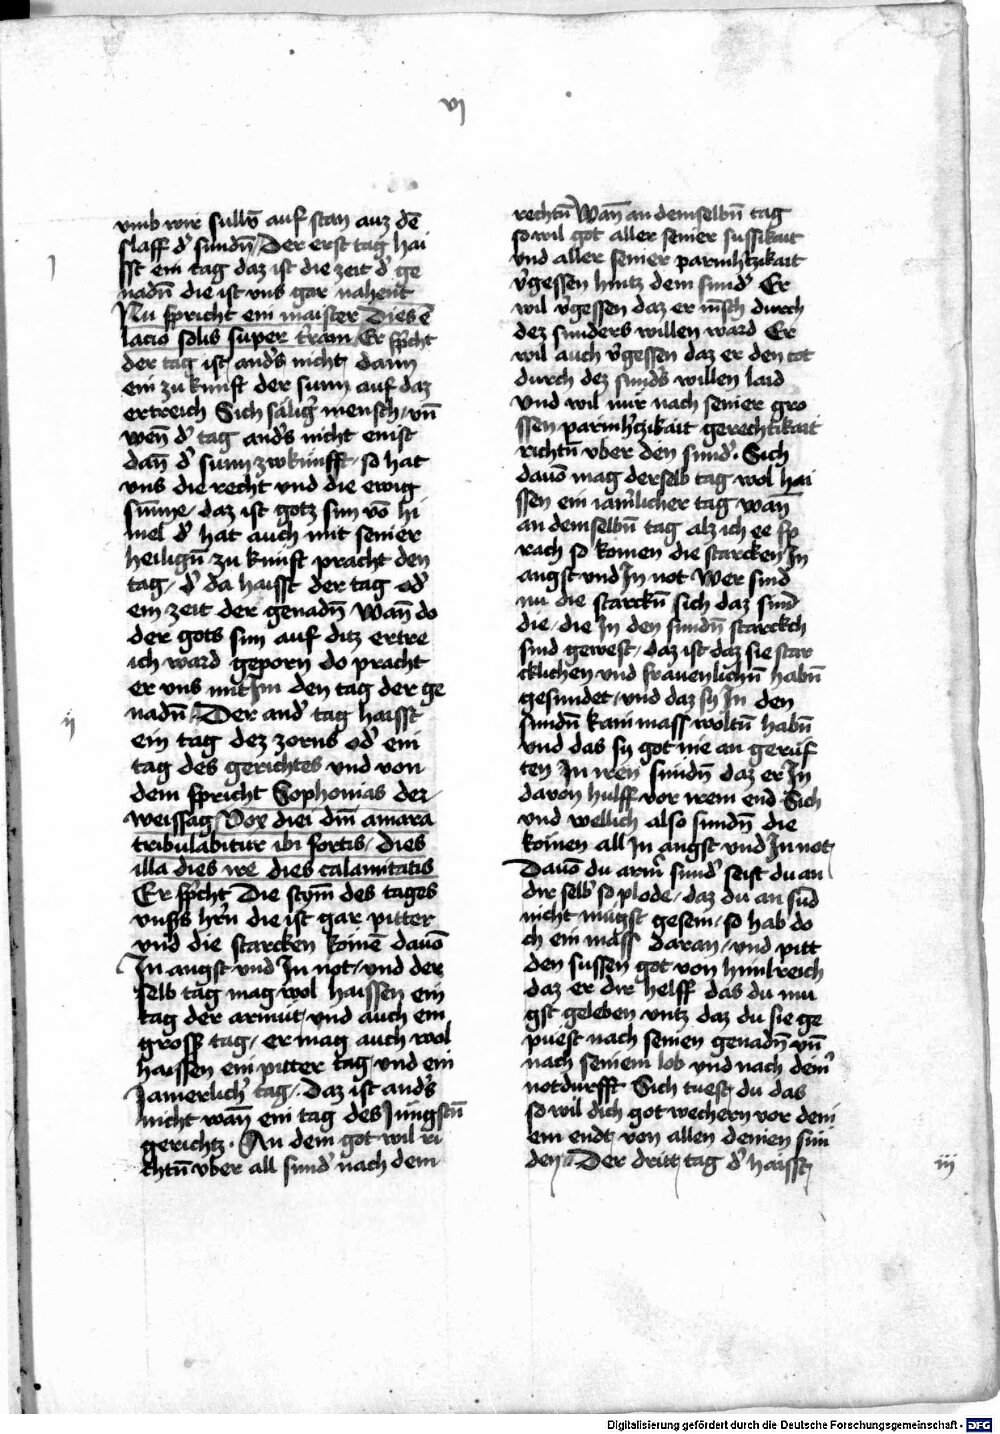 vj
vmb wir sulln̄ auf stan auz dē
slaff d' sundn̄ Der erst tag hai
j
sst ein tag daz ist die zeit d' ge
nadn̄ die ist vns gar nahent
Nu spricht ein maister Dies ē
lacio solis super t'ram Er sp'cht
der tag ist and's nicht dann
ein zu kunft der sunn auf daz
ertreich Sich sälig' mensch vn̄
wen̄ d' tag and's nicht enist
dan̄ d' sunn zwkünfft so hat
vns die recht vnd die ewig
sūnne daz ist gotz sun vō hi
mel d' hat auch mit seiner
heilign̄ zu kunft pracht den
tag d' da haisst der tag od'
ein zeit der genadn̄ Wan̄ do
der gots sun auf ditz ertre
ich ward geporn do pracht
er vns mit Im den tag der ge
nadn̄ Der and' tag haisst
ij
ein tag dez zorns od' ein
tag des gerichtes vnd von
dem spricht Sophonias dez
weissag Vox diei dn̄i amara
tribulabitur ibi fortis dies
illa dies ire dies calamitatis
Er sp'cht Die stym̄ des tages
vnss hr'n die ist gar pitter
vnd die starcken komē dauō
In angst vnd In not vnd der
selb tag mag wol haissen ein
tag der armut vnd auch ein
gross tag er mag auch wol
haissen ein pitter tag vnd ein
Jamerlich' tag Daz ist and's
nicht wan̄ ein tag des Jüngstn̄
gerichtz. An dem got wil ri
chtn̄ vber all sund' nach dem
rechtn̄ Wan̄ an demselbn̄ tag
so wil got aller seiner sussikait
vnd aller seiner parmh'tzikait
v'gessen hintz dem sund' Er
wil v'gessen daz er m̄sch durch
dez sunders willen ward Er
wil auch v'gessen daz er den tot
durch dez sund's willen laid
Vnd wil nur nach seiner gro
ssen parmh'tzikait gerechtikait
richtn̄ vber den sund'. Sich
dauō mag derselb tag wol hai
ssen ein iam'licher tag wan̄
an demselbn̄ tag alz ich ee sp
rach so komen die starcken In
angst vnd In not Wer sind
nu die starckn̄ sich daz sind
die die In den sundn̄ starckch
sind gewest daz ist daz sie star
cklichen vnd frauenlichn̄ habn̄
gesundet vnd daz sy In den
sundn̄ kain mass woltn̄ habn̄
vnd das sy got nie an gerüf
ten In iren sundn̄ daz er In
dauon hulff vor irem end Sich
vnd wellich also sundn̄ die
komen all In angst vnd In not
Dauō du arm' sund' seist du an
dir selb' so plode daz du an sūd
nicht mugst gesein so hab do
ch ein mass daran vnd pitt
den sussen got von himlreich
daz er dir helff das du mu
gst geleben vntz daz du sie ge
puest nach seinen genadn̄ vn̄
nach seinem lob vnd nach dein'
notdurfft Sich tuest du das
so wil dich got wechern vor deim
em endt von allen deinen sun
den Der dritt tag d' haisst
iij
Digitalisierung gefördert durch die Deutsche Forschungsgemeinschaft - DFG